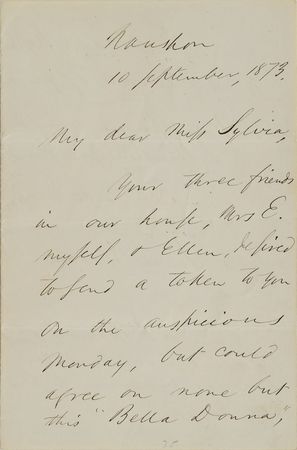 Naushon
10 September, 1873.
My dear Miss Sylvia,
Your three friends
in our house, Mrs E.
myself, & Ellen, desired
to send a token to you
on the auspicious
Monday, but could
agree on none but
this "Bella Donna,"